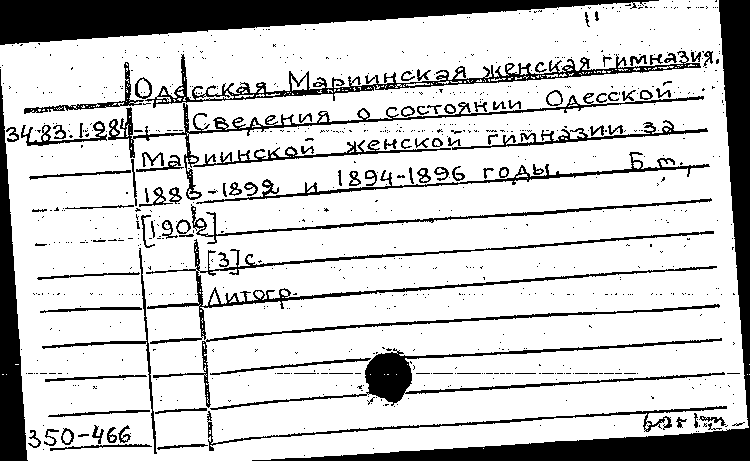 Одесская Мариинская женская гимназия.
34.83.1.984 Сведения о состоянии Одесской
Мариинской женской гимназии за
1886-1892 и 1894-1896 годы. Б.м.,
[1909]
[3] с.
Литогр.
350-466